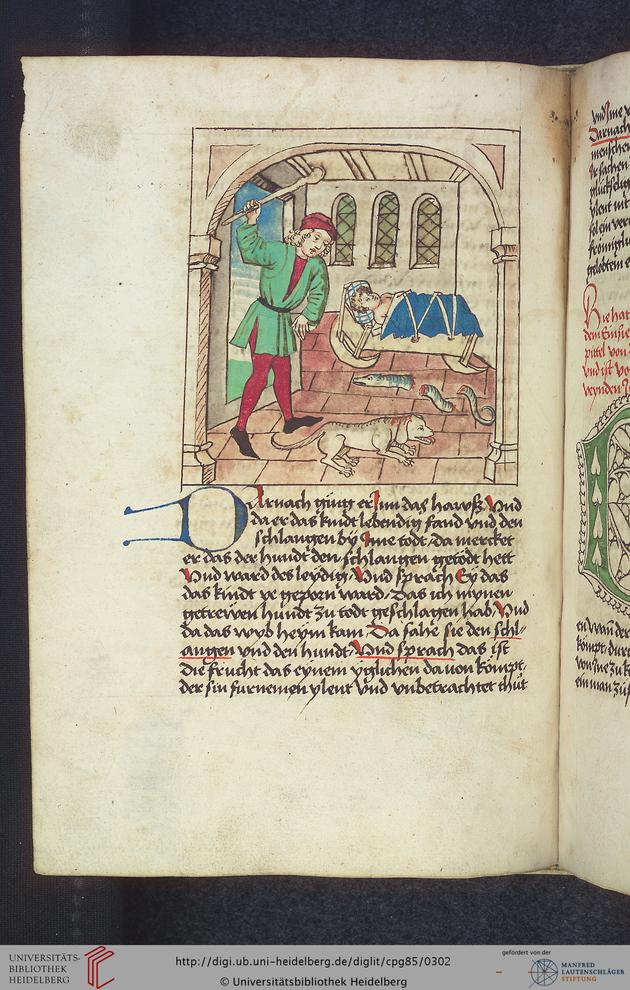 Darnach ging er Inn das hawß Vnd
da er das kindt lebendig fand vnd den
schlangen by Ime todt Da mercket
er das der hundt den schlangen getodt hett
Vnd ward des leydig Vnd sprach Ey das
das kindt ye geporn ward Das ich mynen
getrewen hundt zu todt geschlagen hab Vnd
da das wyb heym kam Da sahe sie den schl-
angen vnd den hundt Vnd sprach das ist
die frucht das eynem yglichen dauon kompt
der sin furnemen ylent vnd vnbetrachtet thut
vnd Ime
Darnach
menschen
sachen
ylent
gelobtem
Hie hat
dem Einsie
spittel von
vnd ist vo
kompt durch
ein man zu
UNIVERSITÄTS-
BIBLIOTHEK
HEIDELBERG
http://digi.ub.uni-heidelberg.de/diglit/cpg85/0302
© Universitätsbibliothek Heidelberg
gefördert von der
MANFRED
LAUTENSCHLÄGER
STIFTUNG